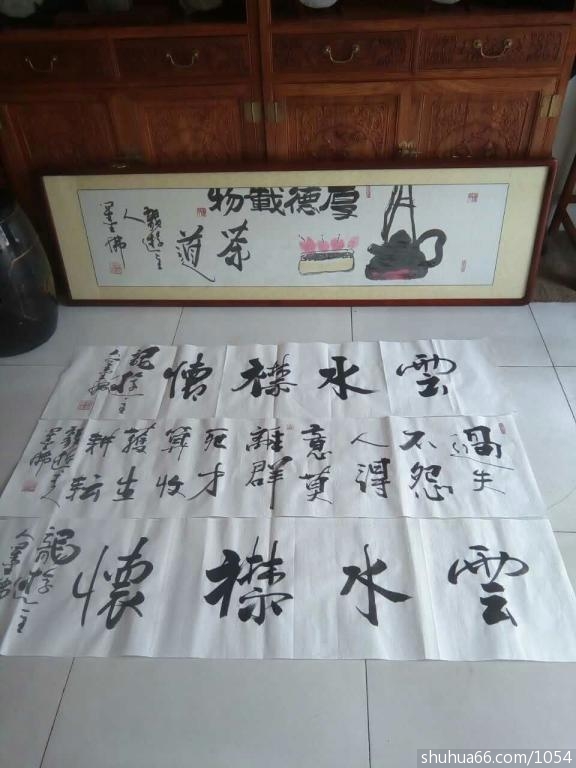 厚德載物
茶道
龍遊主人墨佛
雲水襟懷
龍遊主人墨佛
過失不怨人得意莫離群死才算收穫生耕耘
龍遊主人墨佛
雲水襟懷
龍遊主人墨佛
shuhua66.com/1054